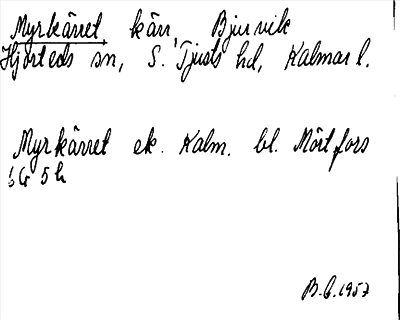 Myrkärret, kärr, Bjurvik
Hjorteds sn, S. Tjusts hd, Kalmar l.
Myrkärret ek. Kalm. bl. Mörtfors
6G 5h
B.G. 1957